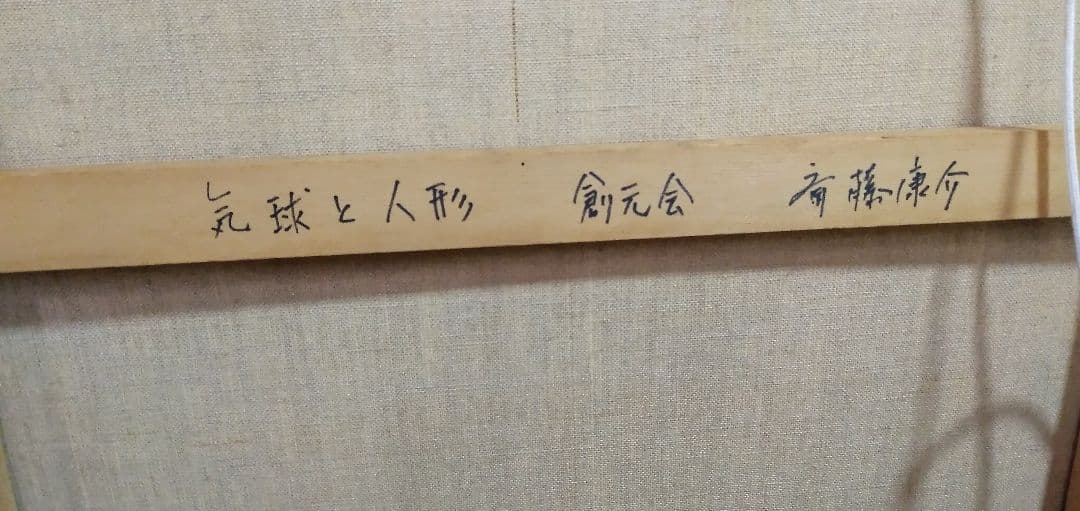 気球と人形 創元会 斎藤康介